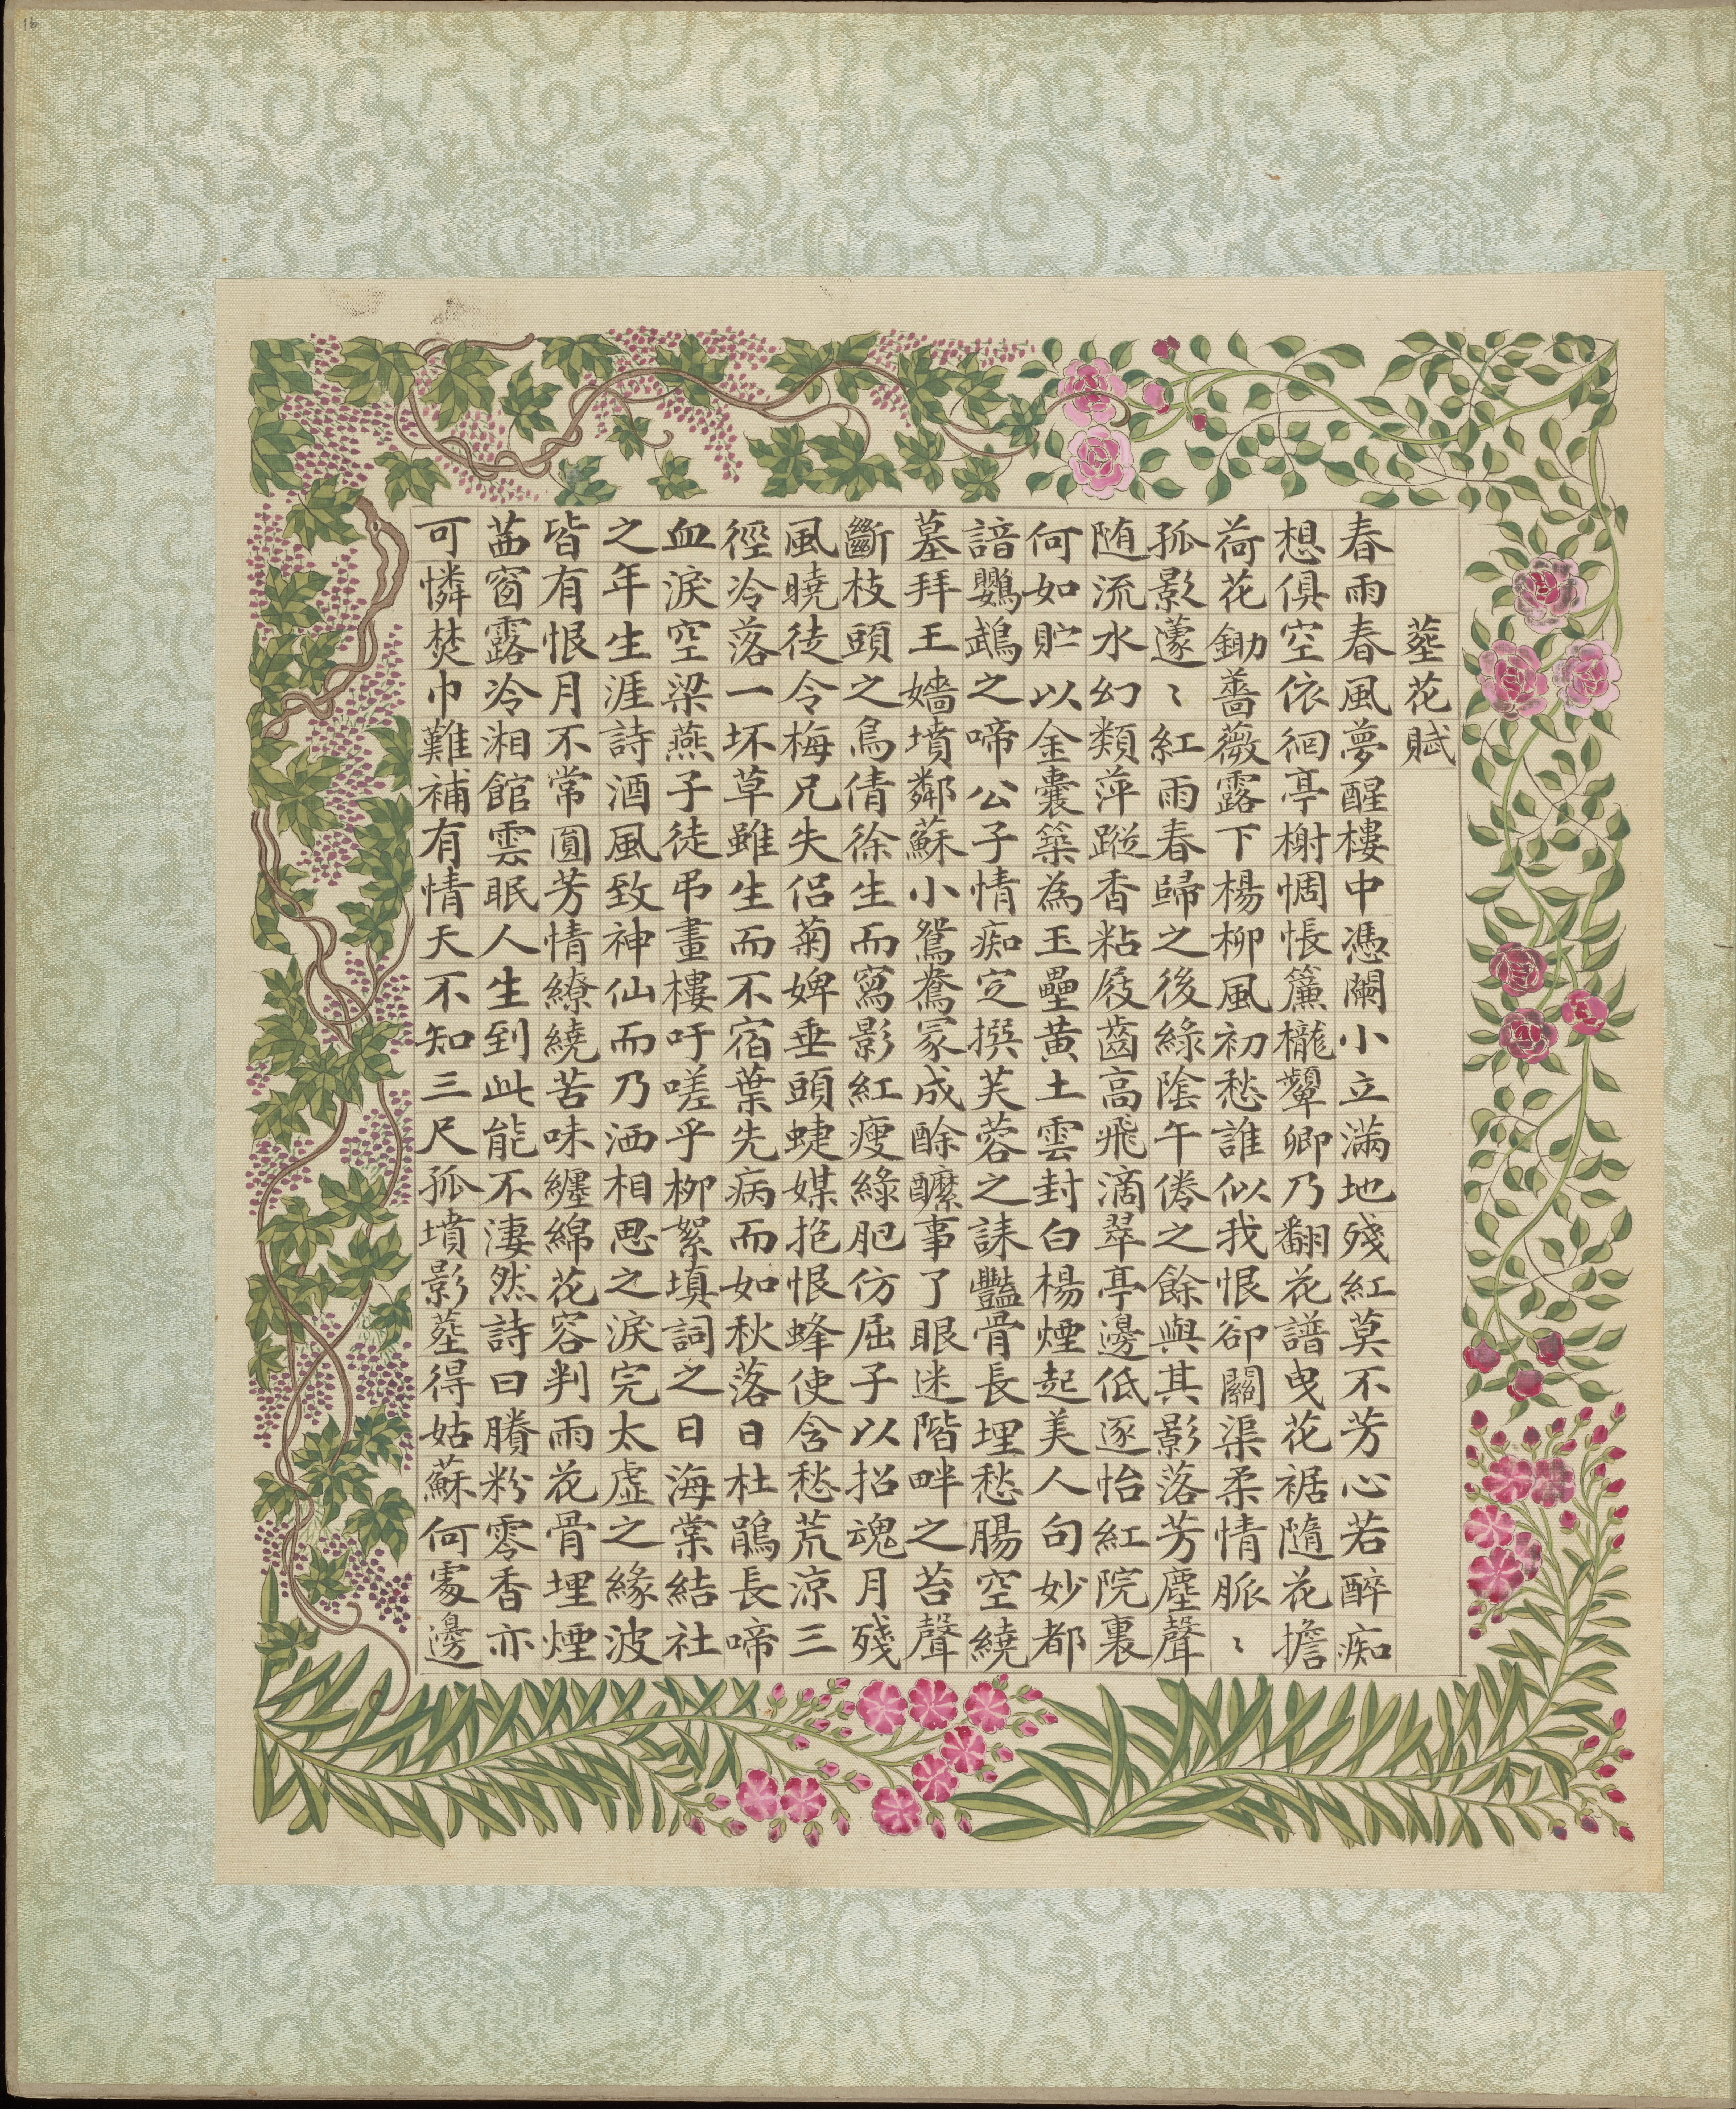 16
葬花賦
春雨春風夢醒樓中憑闌小立滿地殘紅莫不芳心若醉痴
想俱空依徊亭榭惆悵簾櫳顰卿乃翻花譜曳花裾隨花擔
荷花鋤薔薇露下楊柳風初愁誰似我恨卻關渠柔情脈〻
孤影蘧〻紅雨春歸之後綠陰午倦之餘與其影落芳塵聲
随流水幻類萍蹤香粘屐齒高飛滴翠亭邊低逐怡紅院裏
何如貯以金囊築為玉壘黃土雲封白楊煙起美人句妙都
諳鸚鵡之啼公子情痴定撰芙蓉之誄豔骨長埋愁腸空繞
墓拜王嬙墳鄰蘇小鴛鴦冢成酴醾事了眼迷階畔之苔聲
斷枝頭之鳥倩徐生而寫影紅瘦綠肥仿屈子以招魂月殘
風曉徒令梅兄失侶菊婢垂頭蜨媒抱恨蜂使含愁荒涼三
徑冷落一坏草雖生而不宿葉先病而如秋落日杜鵑長啼
血淚空梁燕子徒弔畫樓吁嗟乎柳絮填詞之日海棠結社
之年生涯詩酒風致神仙而乃洒相思之淚完太虛之緣波
皆有恨月不常圓芳情繚繞苦味纏綿花容判雨花骨埋煙
茜窗露冷湘館雲眠人生到此能不淒然詩曰賸粉零香亦
可憐焚巾難補有情天不知三尺孤墳影葬得姑蘇何處邊